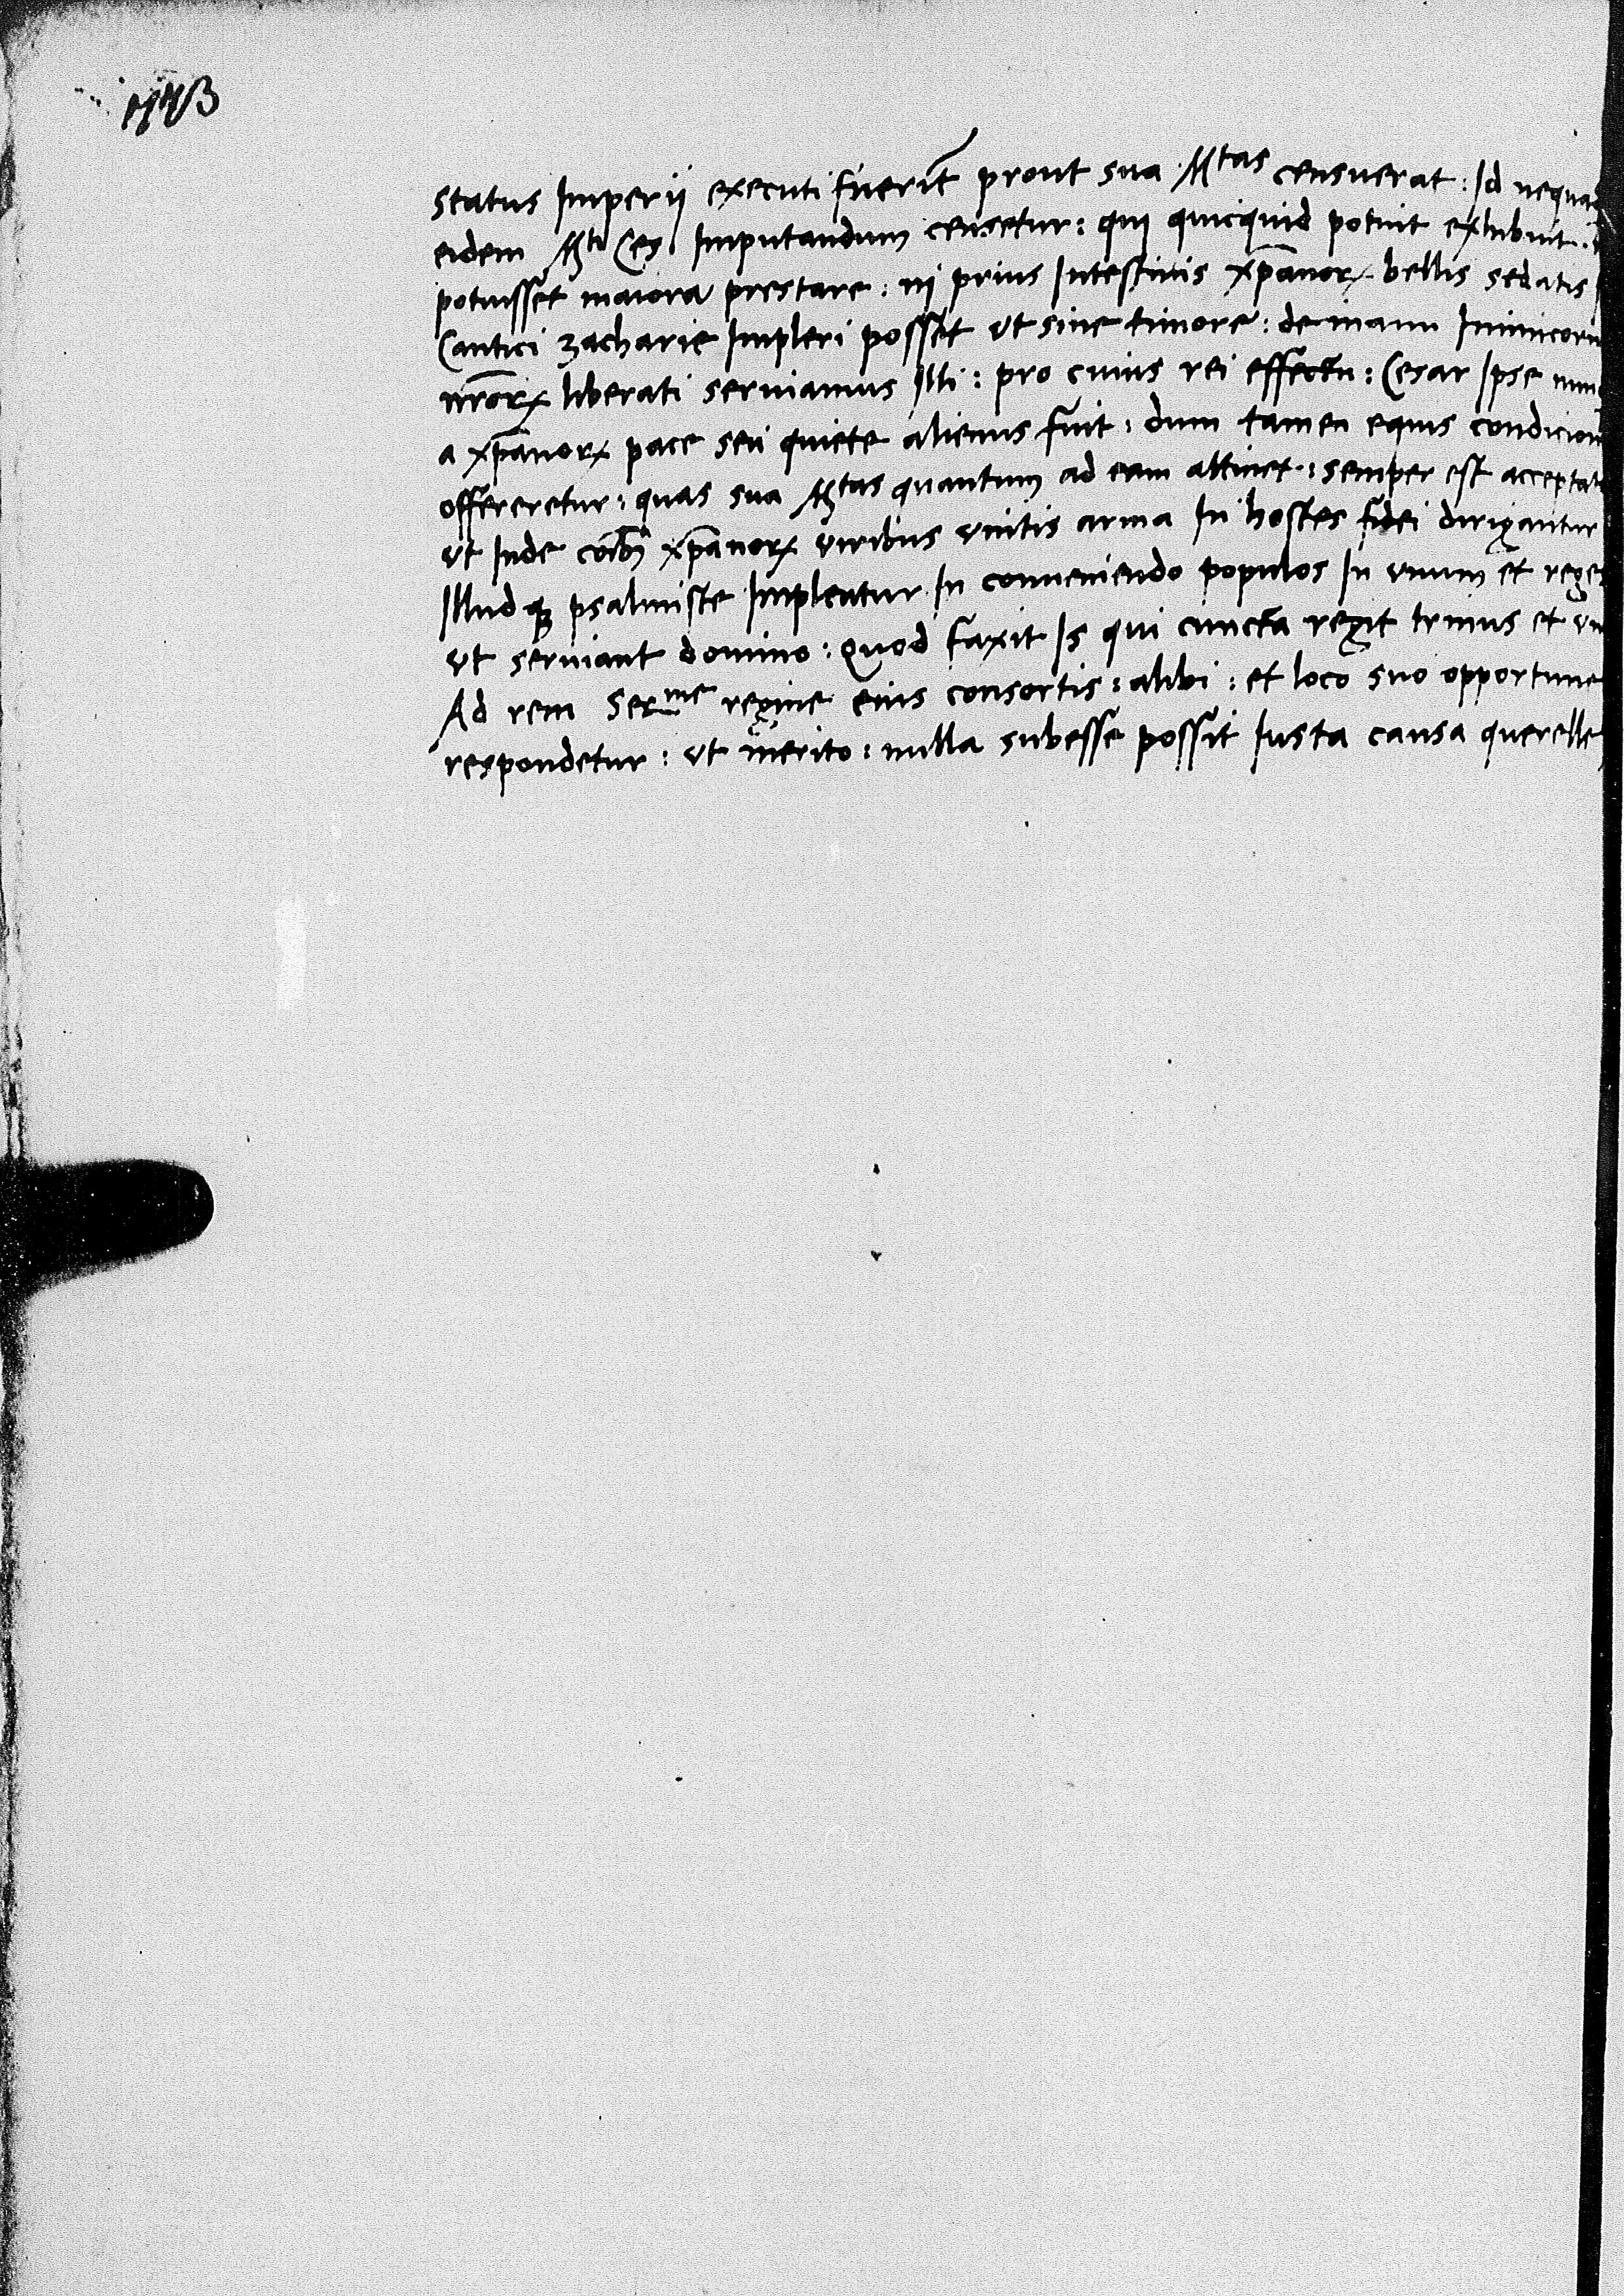 status Imperij executi fuerīt prout sua Mtas censuerat: Id nequa
eidem Mti Ces Imputandum censetur: qui quicquid potuit exhibuit.
potuisset maiora prestare: nj prius Intestinis xp̄anorꝝ bellis sedatis
Cantici zacharie Impleri posset vt sine timore: de manu Inimicoru
nr̄orꝝ liberati seruiamus Illi: pro cuius rei effectu: Cesar Ipse nun
a xp̄anorꝝ pace seu quiete alienus fuit: dum tamen equis condicion
offereretur: quas sua Mtas quantum ad eam attinet: semper est acceptat
vt Inde coībꝫ xp̄anorꝝ viribus vnitis arma In hostes fidei dirigantur
Illudqꝫ psalmiste Impleatur In conueniendo populos In vnum et reges
vt seruiant domino: Quod faxit Is qui cuncta regit trinus et vn
Ad rem Serme regine eius consortis: alibi: et loco suo opportune
respondetur: vt merito: nulla subesse possit Iusta causa querelle